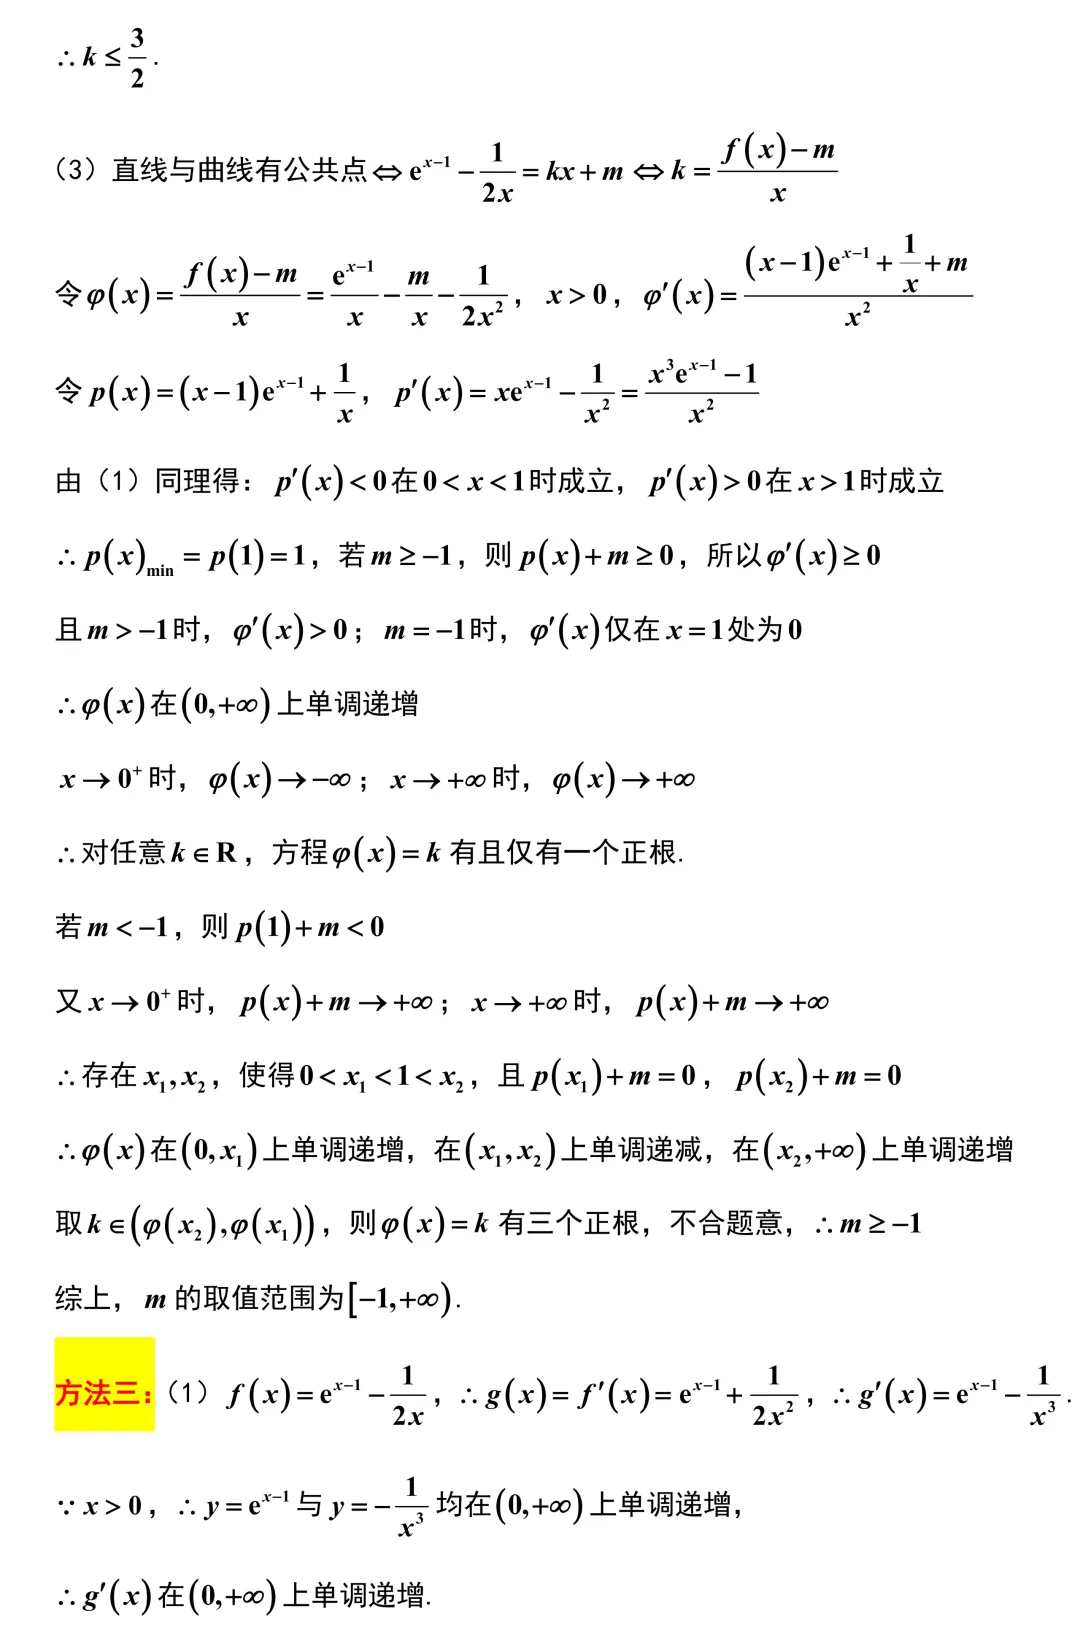 ∴k≤3/2.
（3）直线与曲线有公共点⇔e^(x−1)−1/(2x)=kx+m⇔k=(f(x)−m)/x
令φ(x)=(f(x)−m)/x=e^(x−1)/x−m/x−1/(2x²)，x>0，φ′(x)=((x−1)e^(x−1)+1/x+m)/x²
令p(x)=(x−1)e^(x−1)+1/x，p′(x)=xe^(x−1)−1/x²=(x³e^(x−1)−1)/x²
由（1）同理得：p′(x)<0在0<x<1时成立，p′(x)>0在x>1时成立
∴p(x)_min=p(1)=1，若m≥−1，则p(x)+m≥0，所以φ′(x)≥0
且m>−1时，φ′(x)>0；m=−1时，φ′(x)仅在x=1处为0
∴φ(x)在(0,+∞)上单调递增
x→0⁺时，φ(x)→−∞；x→+∞时，φ(x)→+∞
∴对任意k∈R，方程φ(x)=k有且仅有一个正根.
若m<−1，则p(1)+m<0
又x→0⁺时，p(x)+m→+∞；x→+∞时，p(x)+m→+∞
∴存在x₁,x₂，使得0<x₁<1<x₂，且p(x₁)+m=0，p(x₂)+m=0
∴φ(x)在(0,x₁)上单调递增，在(x₁,x₂)上单调递减，在(x₂,+∞)上单调递增
取k∈(φ(x₂),φ(x₁))，则φ(x)=k有三个正根，不合题意，∴m≥−1
综上，m的取值范围为[−1,+∞).
方法三：（1）f(x)=e^(x−1)−1/(2x)，∴g(x)=f′(x)=e^(x−1)+1/(2x²)，∴g′(x)=e^(x−1)−1/x³.
∵x>0，∴y=e^(x−1)与y=−1/x³均在(0,+∞)上单调递增，
∴g′(x)在(0,+∞)上单调递增.